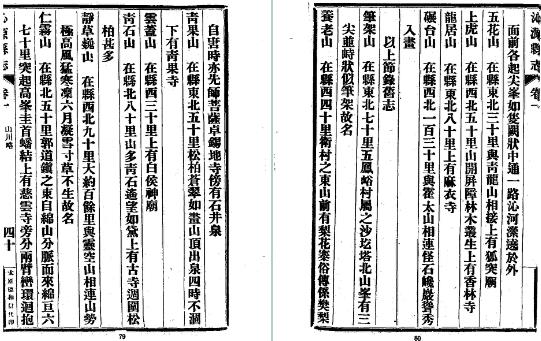 沁源縣志 卷一
面前各起尖峯如雙闕狀中通一路沁河瀠遶於外
五花山 在縣東北三十里與靑龍山相接上有狐突廟
上虎山 在縣西北五十里山開屏障林木叢生上有香林寺
龍居山 在縣東北八十里上有麻衣寺
碾台山 在縣西北一百三十里與霍太山相連怪石巉巖聳秀
入畫
以上節錄舊志
筆架山 在縣東北七十里五鳳峪村屬之沙圪塔北山峯有三
尖並峙狀似筆架故名
養老山 在縣西四十里衛村之東山前有梨花寨俗傳係樊梨
80
自雲時亦先師菩薩卓錫地寺傍有石井泉
靑果山 在縣東北五十里松柏蒼翠如畫山頂出泉四時不涸
下有靑果寺
雲蓋山 在縣西三十里上有白侯神廟
靑石山 在縣北八十里山多靑石遙望如黛上有古寺週圍松
柏甚多
靜草山 在縣西北九十里大約百餘里與靈空山相連山勢
極高風猛寒凜六月凝雪寸草不生故名
仁霧山 在縣北五十里郭道鎭之東自綿山分脈而來綿亘六
七十里突起高峯圭首蟠結上有慈雲寺旁分兩臂巒環迴抱
沁源縣志 卷一 山川略 四十
79